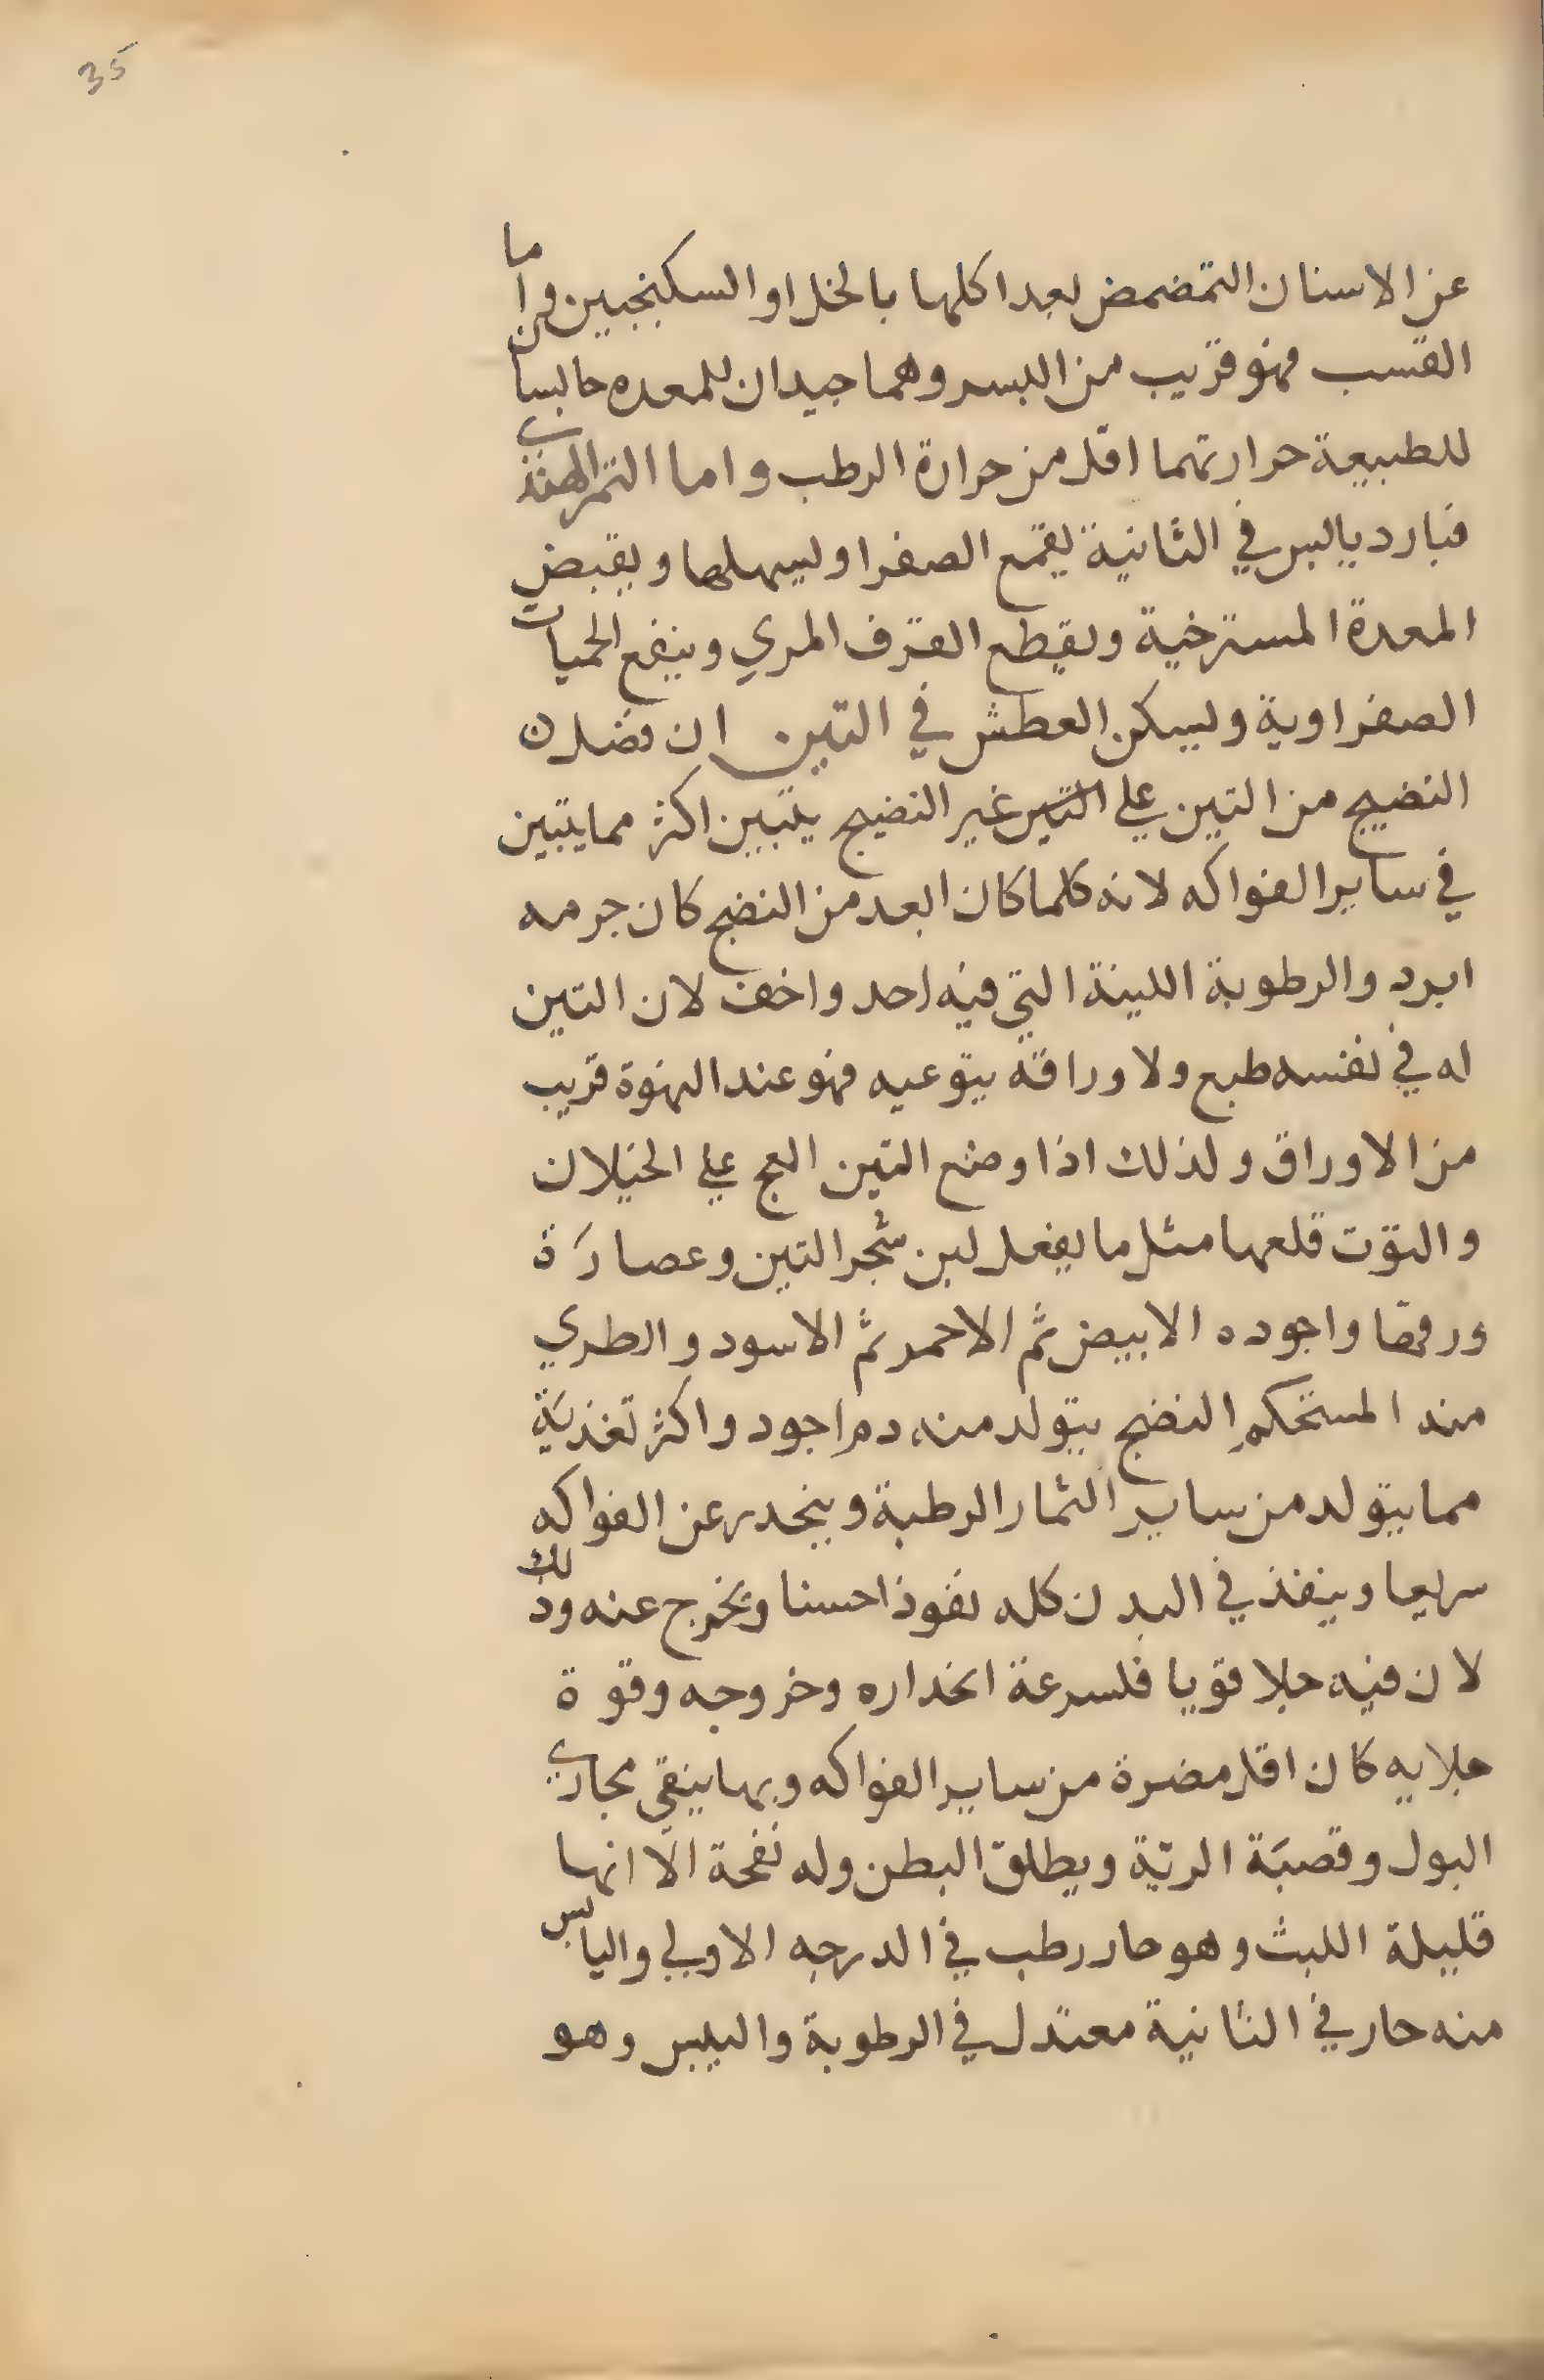 35
عن الاسنان التمضمض بعد اكلها بالخل او السكنجبين واما
القسب فهو قريب من البسر وهما جيدان للمعده حابسان
للطبيعة حرارتهما اقل من حرارة الرطب واما التمر الهندي
فبارد يابس في الثانية يقمع الصفرا ويسهلها ويقبض
المعدة المسترخية ويقطع القرف المري وينفع الحميات
الصفراوية ويسكن العطش في التين ان فضل
النضيج من التين علي التين غير النضيج يتبين اكثر مما يتبين
في ساير الفواكه لانه كلما كان ابعد من النضج كان جرمه
ابرد والرطوبة اللينة التي فيه احد واخف لان التين
له في نفسه طبع ولاوراقه يتوعيه فهو عند النهوة قريب
من الاوراق ولذلك اذا وضع التين الفج علي الخيلان
والتوت قلعها مثل ما يفعل لبن شجر التين وعصارَة
ورقها واجوده الابيض ثم الاحمر ثم الاسود والطري
منه المستحكم النضج يتولد منه دم اجود واكثر تغذيَة
مما يتولد من ساير الثمار الرطبة وينحدر عن الفواكه
سريعا وينفذ في البدن كله نفوذا حسنا ويخرج عنه وذلك
لان فيه جلا قويا فلسرعة انحداره وخروجه وقوة
جلايه كان اقل مضرة من ساير الفواكه وبها ينقي مجاري
البول وقصبَة الريّة ويطلق البطن وله نفخة الا انها
قليلة اللبث وهو حار رطب في الدرجه الاولي واليابس
منه حار في الثانية معتدل في الرطوبة واليبس وهو